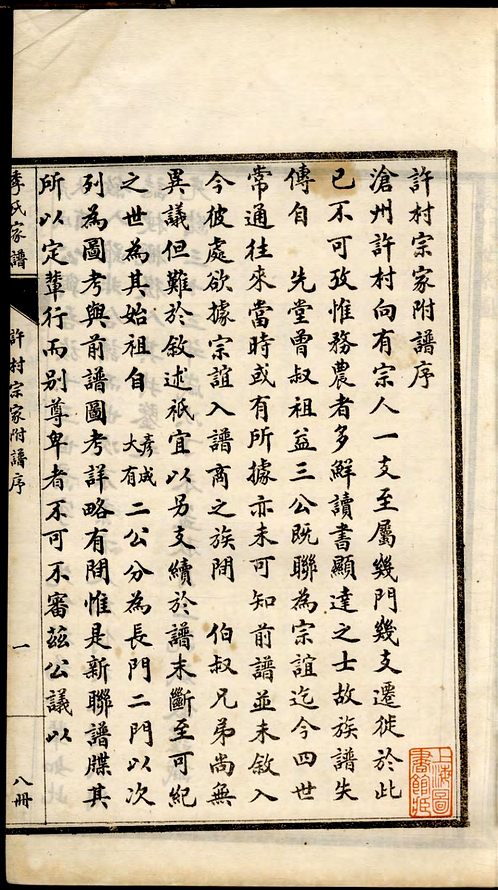 許村宗家附譜序
滄州許村向有宗人一支至屬幾門幾支遷徙於此
已不可攷惟務農者多鮮讀書顯達之士故族譜失
傳自　先堂曾叔祖益三公既聯為宗誼迄今四世
常通往來當時或有所據亦未可知前譜並未敘入
今彼處欲據宗誼入譜商之族間　伯叔兄弟尚無
異議但難於敘述祇宜以另支續於譜末斷至可紀
之世為其始祖自　彥成大有二公分為長門二門以次
列為圖考與前譜圖考詳略有間惟是新聯譜牒其
所以定輩行而別尊卑者不可不審茲公議以
李氏家譜
許村宗家附譜序
一
八冊
上海圖書館藏